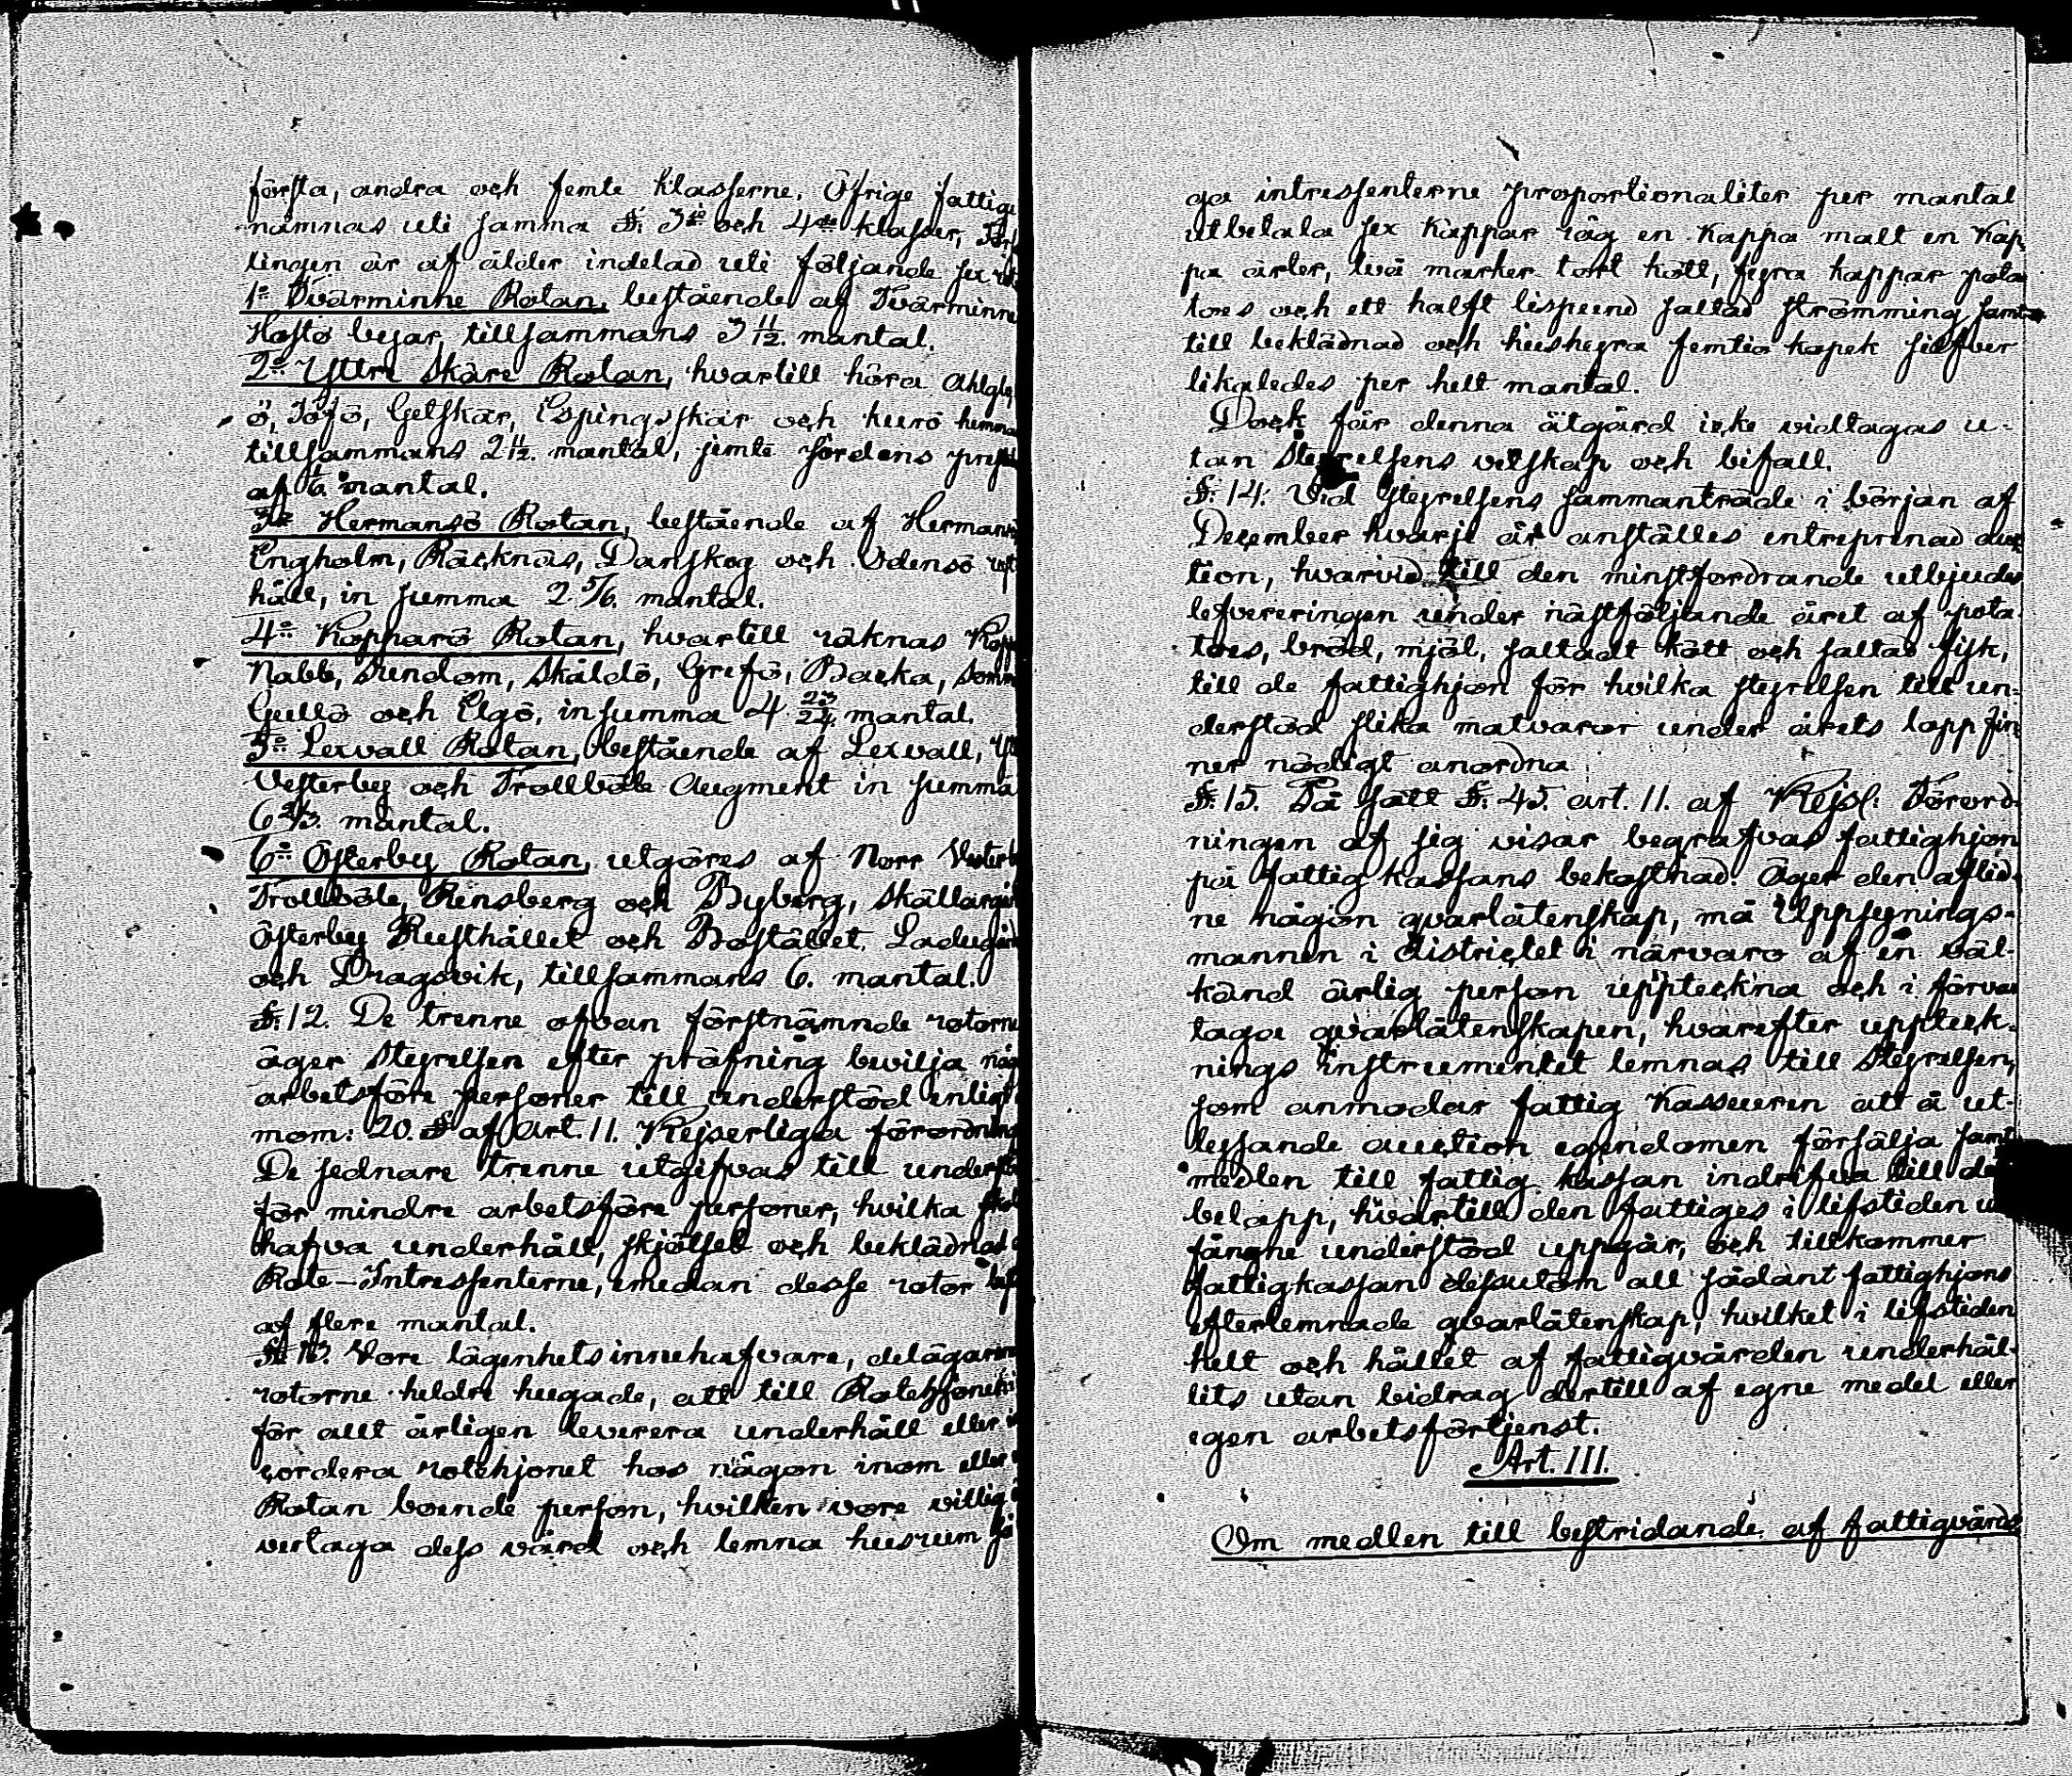 första, andra och femte klasserne. Öfrige fattige
nämnas uti samma §. 3:e och 4:de klasser,
lingen är af ålder indelad uti följande sex
1:o Tvärminne Rotan, bestående af Tvärminne
Hästö byar, tillsammans 3 11/12. mantal.
2:o Yttre Skärs Rotan, hvartill höra
ö, Jofö, Getskär, Espingsskär och Kurö
tillsammans 2 11/12. mantal, jemte jordens
af 1/6. mantal.
3:o Hermansö Rotan, bestående af Hermans
Engholm, Räcknäs, Danskog och Odensö
håll, in summa 2. 5/6. mantal.
4:o Kopparö Rotan, hvartill räknas Kopp
Nabb, Sundom, Skåldö, Grefö, Backa,
Gullö och Elgö, insumma 4 23/24. mantal.
5:o Lexvall Rotan, bestående af Lexvall,
Vesterby och Trollböle Augment in summa
6 2/3. mantal.
6:o Österby Rotan, utgöres af Norr
Trollböle, Rensberg och Byberg,
Österby Rusthållet och Bostället,
och Dragsvik, tillsammans 6. mantal.
§. 12. De trenne ofvan förstnämnde rotorne
äger Styrelsen efter pröfning bevilja
arbetsföre personer till understöd enligt
mom: 20. § af Art. 11. Kejserliga förordning
De sednare trenne utgifvas till
för mindre arbetsföre personer, hvilka
hafva underhåll, skjötsel och beklädnad
Rote-Intressenterne, emedan desse rotor
af flere mantal.
§. 13. Vore lägenhets innehafvare, delägarne
rotorne heldre hugade, att till
för allt årligen leverera underhåll eller
cordera rotehjonet hos någon inom eller
Rotan boende person, hvilken vore villig
vertaga dess vård och lemna husrum
ga intressenterne proportionaliter per mantal
utbetala sex kappar råg en kappa malt en kap
pa ärter, två marker tort kött, fyra kappar pota
toes och ett halft lispund saltad strömming samt
till beklädnad och hushyra femtio kopek silfver
likaledes per helt mantal.
Dock får denna åtgärd icke vidtagas u-
tan Styrelsens vetskap och bifall.
§. 14. Vid Styrelsens sammanträde i början af
December hvarje år anställes entreprenad auc
tion, hvarvid till den minstfordrande utbjudes
lefvereringen under nästföljande året af pota
toes, bröd, mjöl, saltadt kött och saltad fisk,
till de fattighjon för hvilka styrelsen till un-
derstöd slika matvaror under årets lopp fin
ner nödigt anordna
§. 15. På sätt §. 45. art. 11. af Kejsl. Förord-
ningen af sig visar begrafvas fattighjon
på fattig kassans bekostnad. Äger den aflid-
ne någon qvarlåtenskap, må Uppsynings-
mannen i districtet i närvaro af en väl-
känd ärlig person uppteckna och i förvar
taga qvarlåtenskapen, hvarefter uppteck-
nings instrumentet lemnas till Styrelsen,
som anmodar fattig Kasseuren att å ut-
lysande auction egendomen försälja samt
medlen till fattig kassan indrifva till det
belapp, hvartill den fattiges i lifstiden
fångne understöd uppgår, och tillkommer
fattigkassan dessutom all sådant fattighjons
efterlemnade qvarlåtenskap, hvilket i lifstiden
helt och hållet af fattigvården underhål-
lits utan bidrag dertill af egne medel eller
egen arbetsförtjenst.
Art. III.
Om medlen till bestridande af fattigvårds